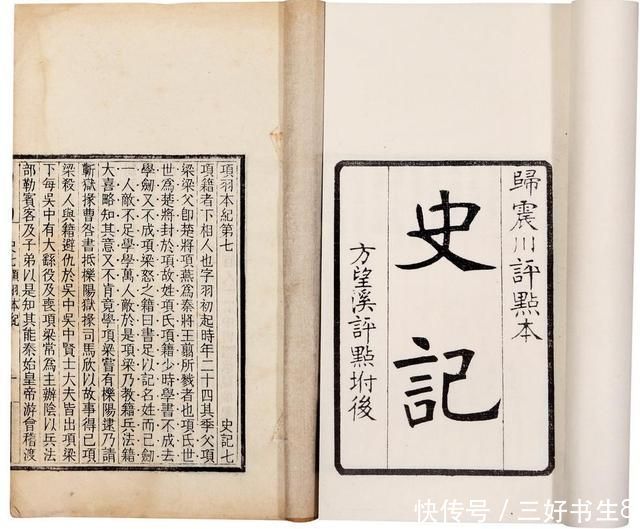 歸震川評點本
史記
方望溪評點坿後
項羽本紀第七
史記七
項籍者下相人也字羽初起時年二十四其季父項
梁梁父卽楚將項燕為秦將王翦所戮者也項氏世
世為楚將封於項故姓項氏項籍少時學書不成去
學劍又不成項梁怒之籍曰書足以記名姓而已劍
一人敵不足學學萬人敵於是項梁乃教籍兵法籍
大喜略知其意又不肯竟學項梁嘗有櫟陽逮乃請
蘄獄掾曹咎書抵櫟陽獄掾司馬欣以故事得已項
梁殺人與籍避仇於吳中吳中賢士大夫皆出項梁
下每吳中有大繇役及喪項梁常為主辦陰以兵法
部勒賓客及子弟以是知其能秦始皇帝游會稽渡
快传号／三好书生8